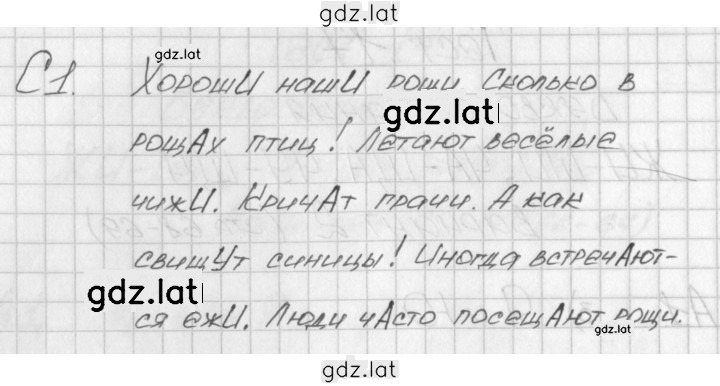 gdz.lat
gdz.lat
С1. ХорошИ нашИ рощи. Сколько в
gdz.lat
рощАх птиц! Летают весёлые
чижИ. КричАт грачи. А как
свищУт синицы! Иногда встречАют-
gdz.lat
ся ежИ. Люди чАсто посещАют рощи.
gdz.lat
gdz.lat